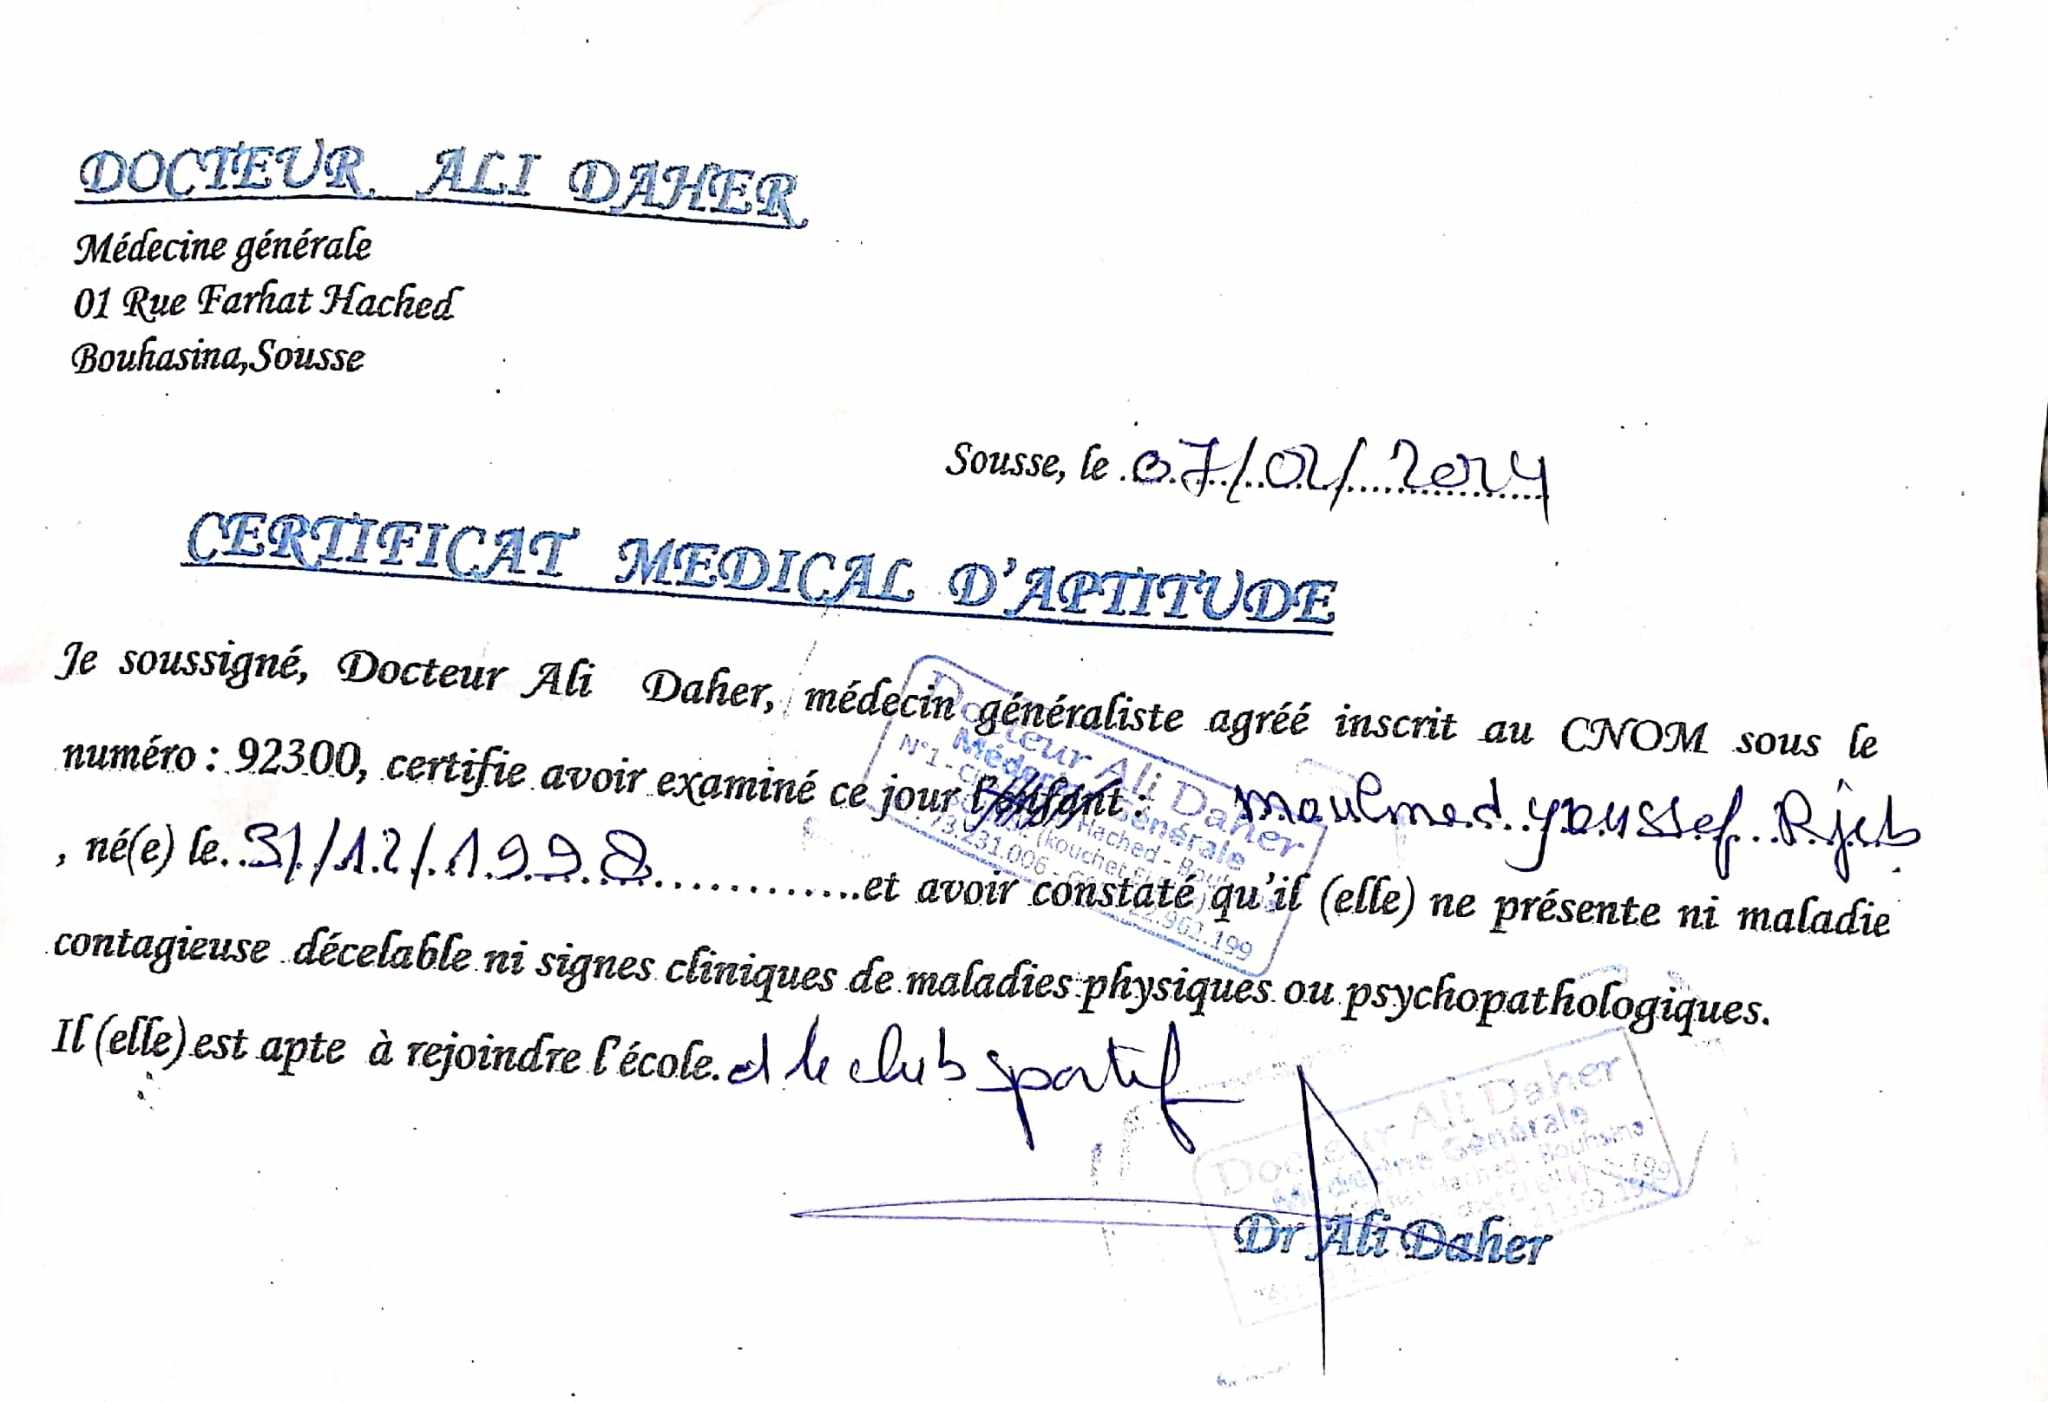 DOCTEUR ALI DAHER
Médecine générale
01 Rue Farhat Hached
Bouhasina,Sousse
Sousse, le 07/02/2024
CERTIFICAT MEDICAL D'APTITUDE
Je soussigné, Docteur Ali Daher, médecin généraliste agréé inscrit au CNOM sous le
numéro : 92300, certifie avoir examiné ce jour l'enfant : Mouhmed youssef Rjeb
, né(e) le 31/12/1998 et avoir constaté qu'il (elle) ne présente ni maladie
contagieuse décelable ni signes cliniques de maladies physiques ou psychopathologiques.
Il (elle) est apte à rejoindre l'école. et le club sportif
Dr Ali Daher
Docteur Ali Daher
Médecine Générale
Hached
73.231.006
Docteur Ali Daher
Médecine Générale